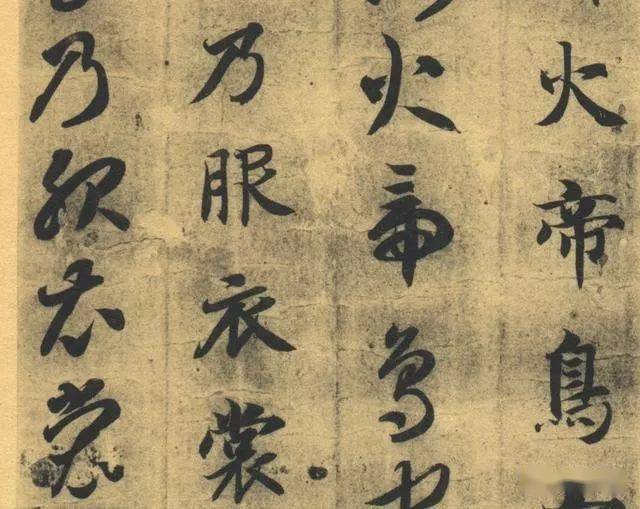 火帝鳥
火帝鳥官
乃服衣裳
乃服衣裳